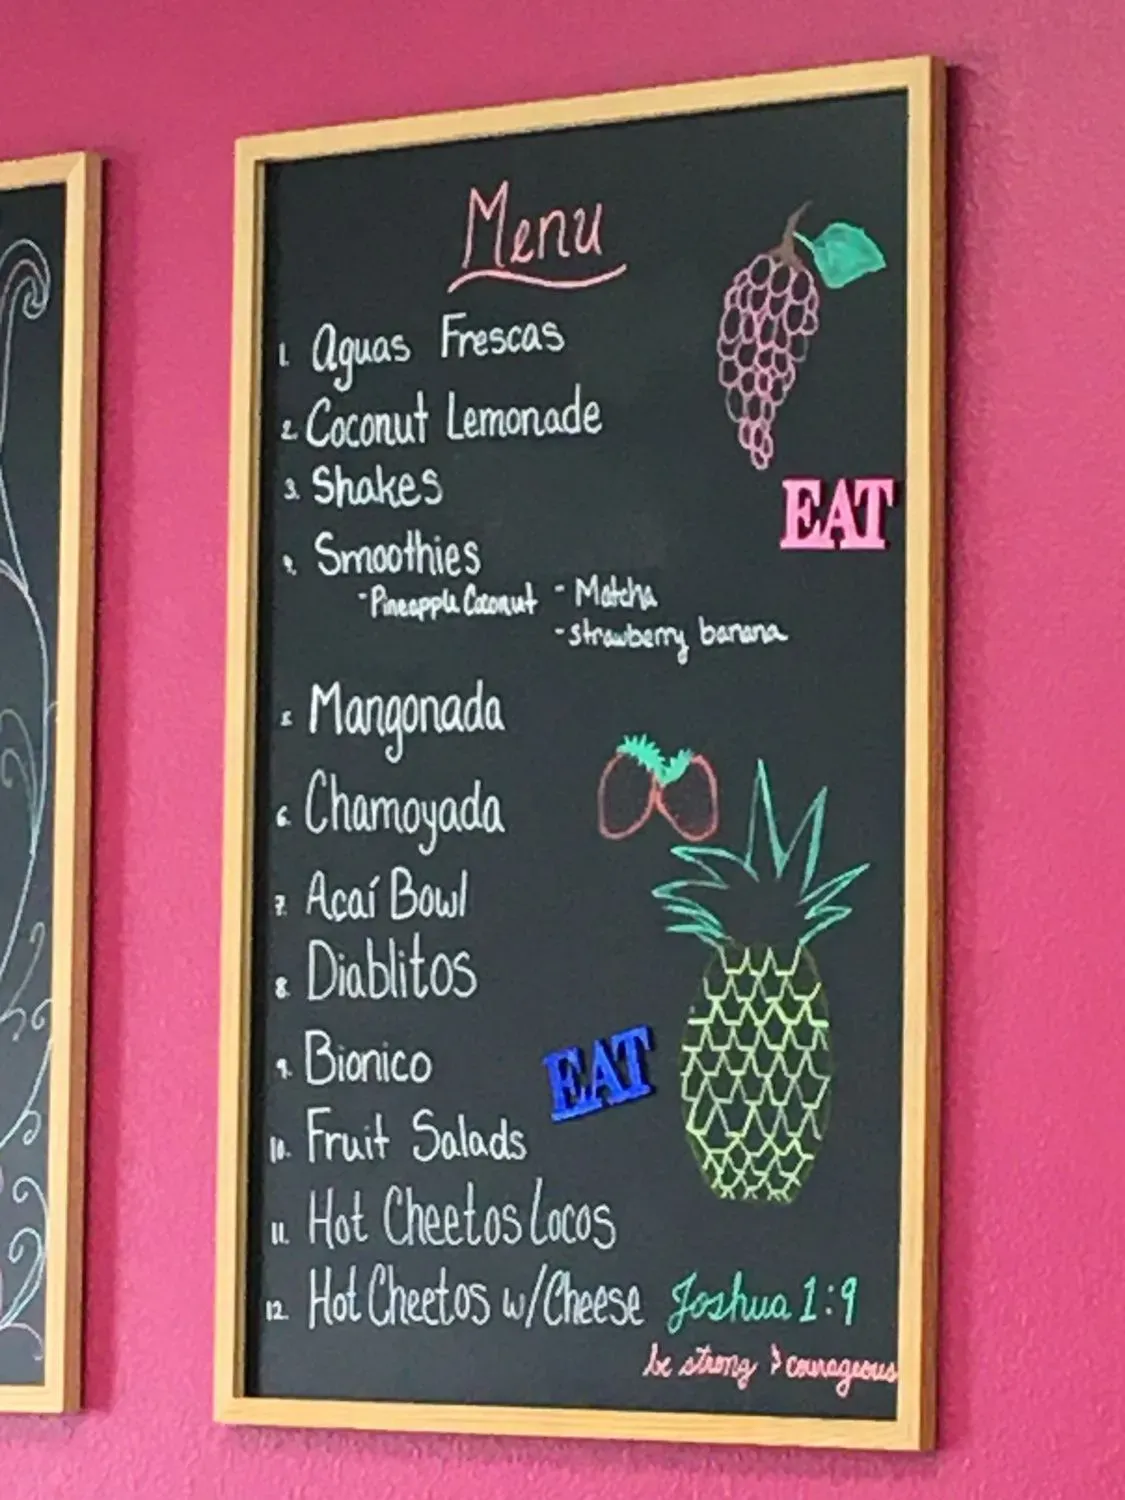 Menu
1. Aguas Frescas
2. Coconut Lemonade
3. Shakes
EAT
4. Smoothies
- Pineapple Coconut - Matcha
- strawberry banana
5. Mangonada
6. Chamoyada
7. Acaí Bowl
8. Diablitos
9. Bionico
EAT
10. Fruit Salads
11. Hot Cheetos Locos
12. Hot Cheetos w/Cheese
Joshua 1:9
be strong & courageous